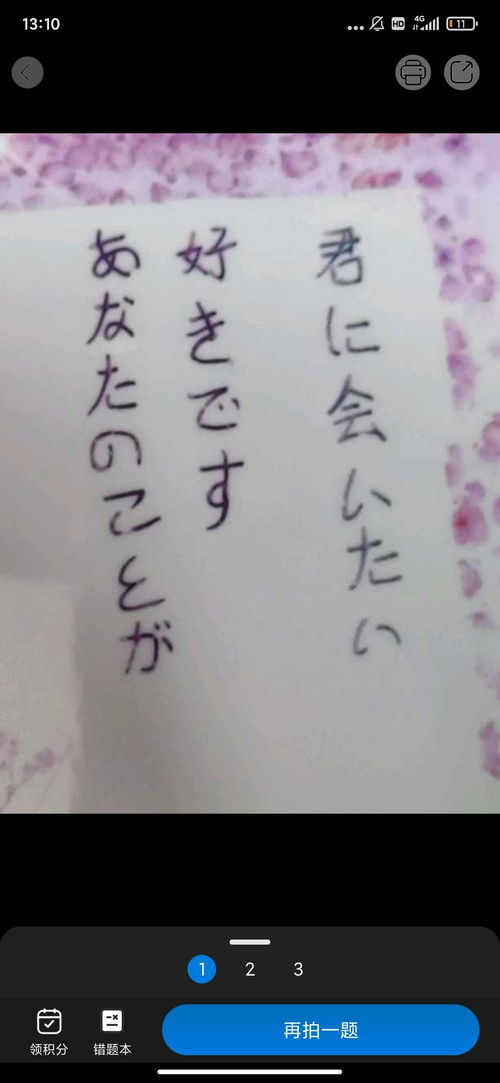 13:10
HD
4G
11
君に会いたい
好きです
あなたのことが
1
2
3
领积分
错题本
再拍一题